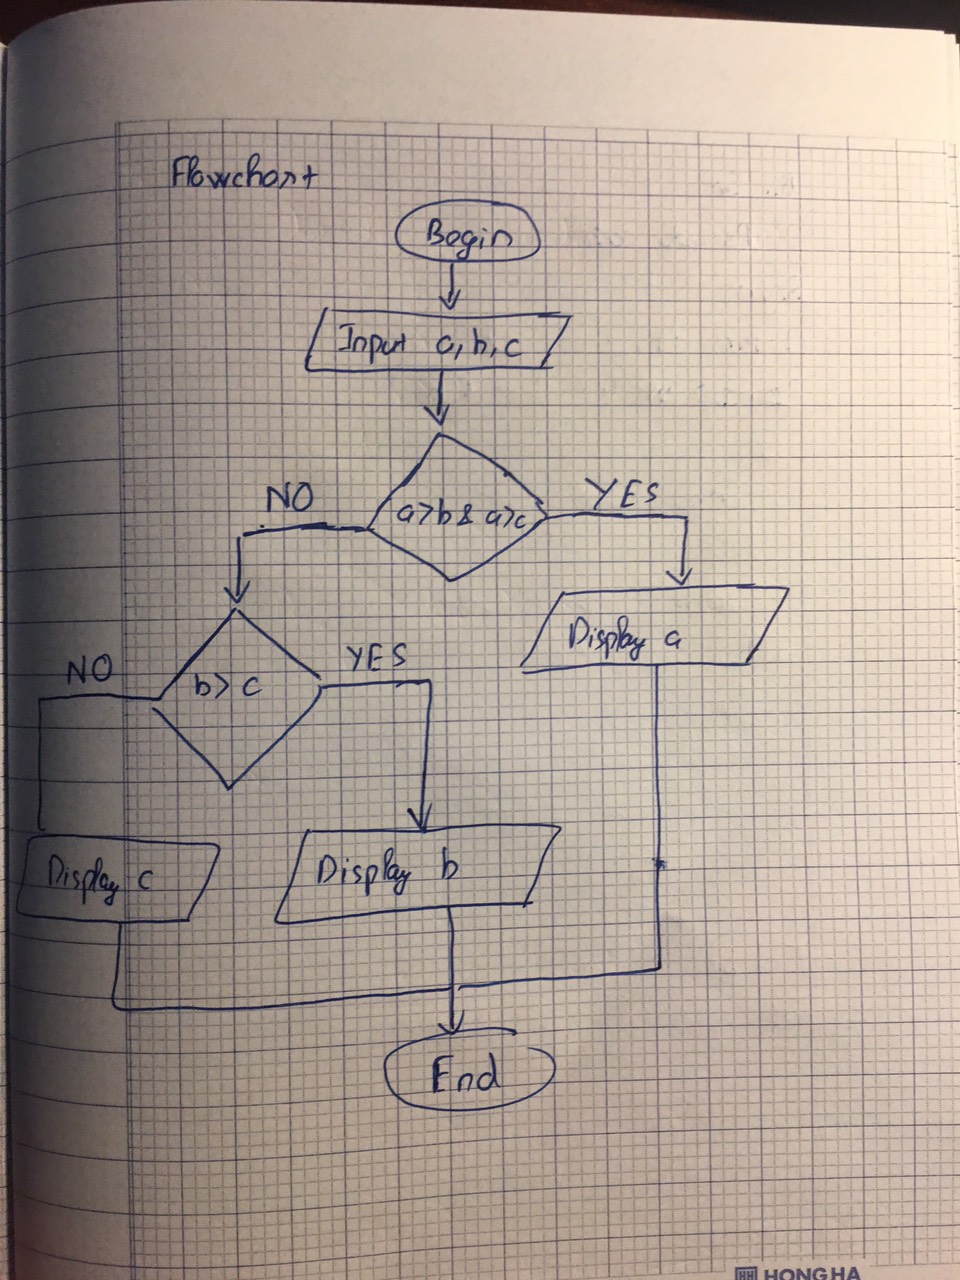 Flowchart
Begin
Input a, b, c
a>b & a>c
NO
YES
Display a
b> c
NO
YES
Display c
Display b
End
HONG HA